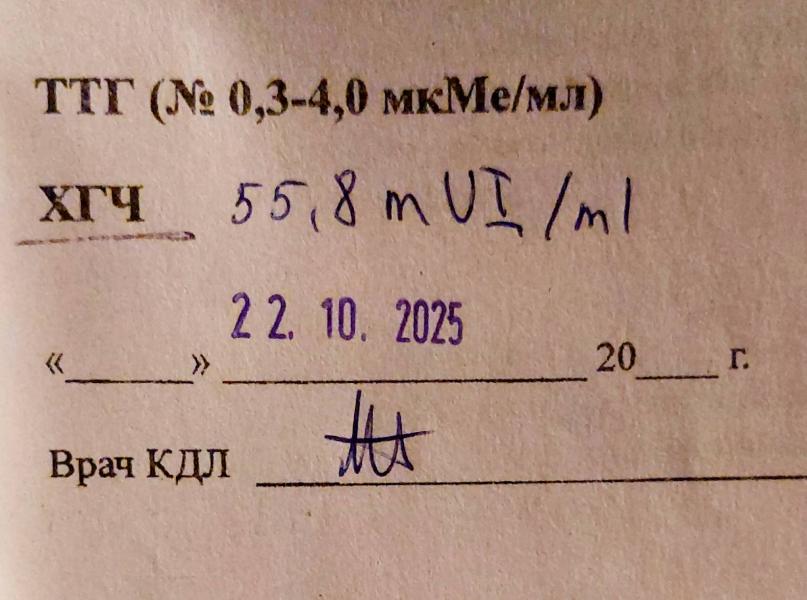 ТТГ (№ 0,3-4,0 мкМе/мл)
ХГЧ 55,8 mUI/ml
22. 10. 2025
«______» __________________ 20____ г.
Врач КДЛ